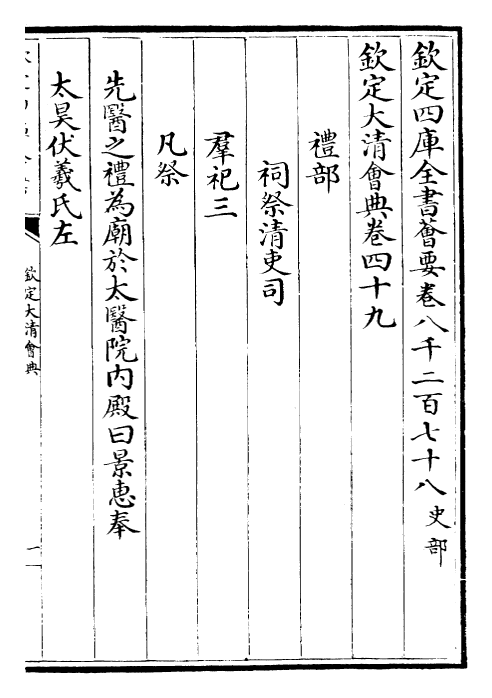 欽定四庫全書薈要卷八千二百七十八 史部
欽定大清會典卷四十九
禮部
祠祭清吏司
羣祀三
凡祭
先醫之禮為廟於太醫院內殿曰景惠奉
太昊伏羲氏左
欽定大清會典
一